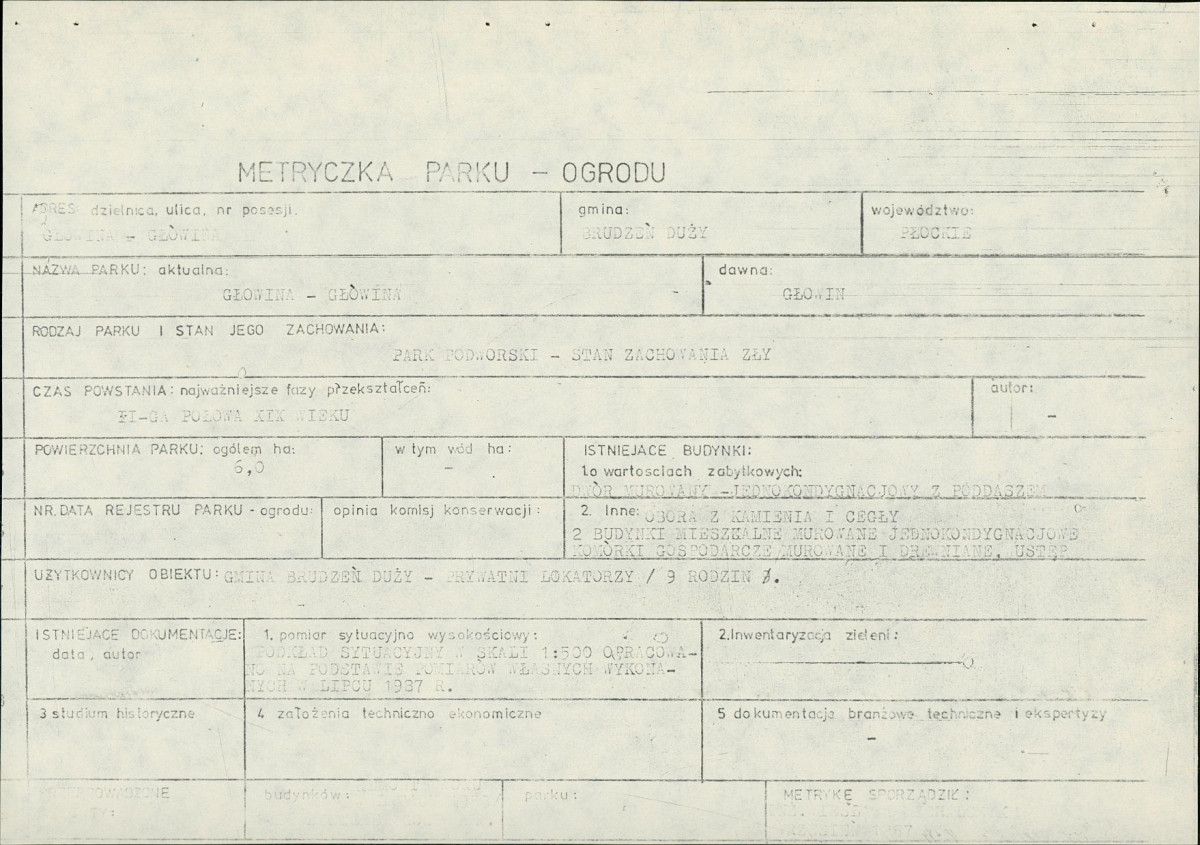 METRYCZKA PARKU - OGRODU
ADRES: dzielnica, ulica, nr posesji.
GŁOWINA - GŁÓWINA
gmina:
BRUDZEŃ DUŻY
województwo:
PŁOCKIE
NAZWA PARKU: aktualna:
GŁOWINA - GŁÓWINA
dawna:
GŁOWIN
RODZAJ PARKU I STAN JEGO ZACHOWANIA:
PARK PODWORSKI - STAN ZACHOWANIA ZŁY
CZAS POWSTANIA: najważniejsze fazy przekształceń:
II-GA POŁOWA XIX WIEKU
autor:
-
POWIERZCHNIA PARKU: ogółem ha:
6,0
w tym wód ha:
-
ISTNIEJACE BUDYNKI:
1.o wartosciach zabytkowych:
DWÓR MUROWANY - JEDNOKONDYGNACJOWY Z PODDASZEM
NR. DATA REJESTRU PARKU - ogrodu:
opinia komisj konserwacji:
2. Inne: OBORA Z KAMIENIA I CEGŁY
2 BUDYNKI MIESZKALNE MUROWANE JEDNOKONDYGNACJOWE
KOMÓRKI GOSPODARCZE MUROWANE I DREWNIANE, USTĘP
UŻYTKOWNICY OBIEKTU: GMINA BRUDZEŃ DUŻY - PRYWATNI LOKATORZY / 9 RODZIN /.
ISTNIEJACE DOKUMENTACJE:
data, autor
1. pomiar sytuacyjno wysokościowy:
PODKŁAD SYTUACYJNY W SKALI 1:500 OPRACOWA-
NO NA PODSTAWIE POMIARÓW WŁASNYCH WYKONA-
NYCH W LIPCU 1987 R.
2. Inwentaryzacja zieleni:
3 studium historyczne
4 założenia techniczno ekonomiczne
5 dokumentacja branżowe techniczne i ekspertyzy
-
budynków:
parku:
METRYKĘ SPORZĄDZIŁ: